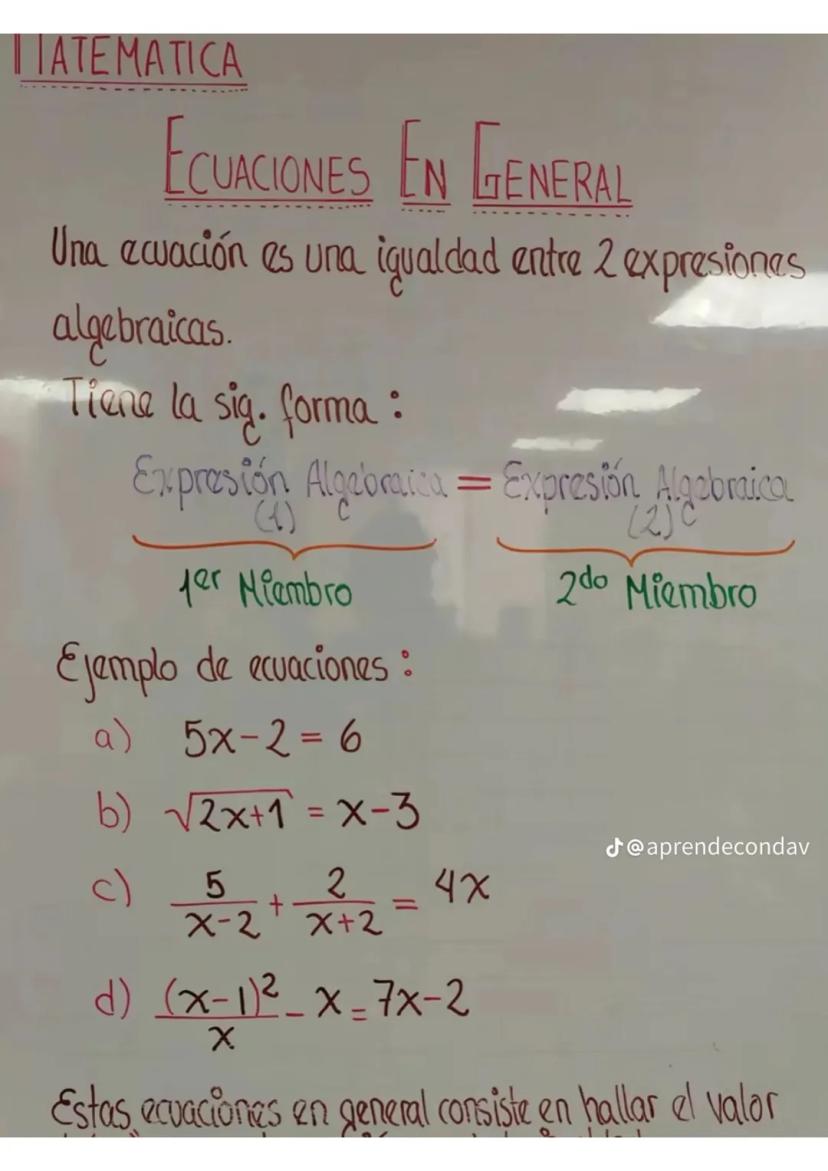 MATEMATICA
ECUACIONES EN GENERAL
Una ecuación es una igualdad entre 2 expresiones
algebraicas.
Tiene la sig. forma :
Expresión Algebraica = Expresión Algebraica
(1) (2)
1er Miembro 2do Miembro
Ejemplo de ecuaciones :
a) 5x-2 = 6
b) √2x+1 = x-3
c) 5/x-2 + 2/x+2 = 4x
@aprendecondav
d) (x-1)²/x - x = 7x-2
Estas ecuaciones en general consiste en hallar el valor